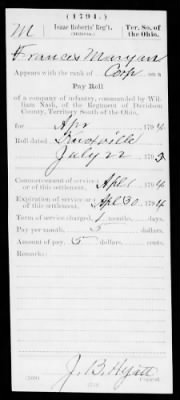 (1794.)
M | Isaac Roberts' Reg't, (Militia). | Ter. So. of the Ohio.
Frances Mangan
Appears with the rank of Corp on a
Pay Roll
of a company of infantry, commanded by Wil-
liam Nash, of the Regiment of Davidson
County, Territory South of the Ohio,
for Apr 1794
Roll dated Knoxville
July 22 1795
Commencement of service
or of this settlement, Apl 1, 1794
Expiration of service
or of this settlement, Apl 30, 1794
Term of service charged, 1 months, days.
Pay per month, 5 dollars
Amount of pay, 5 dollars cents.
Remarks:
J. B. Hyatt
Copyist.